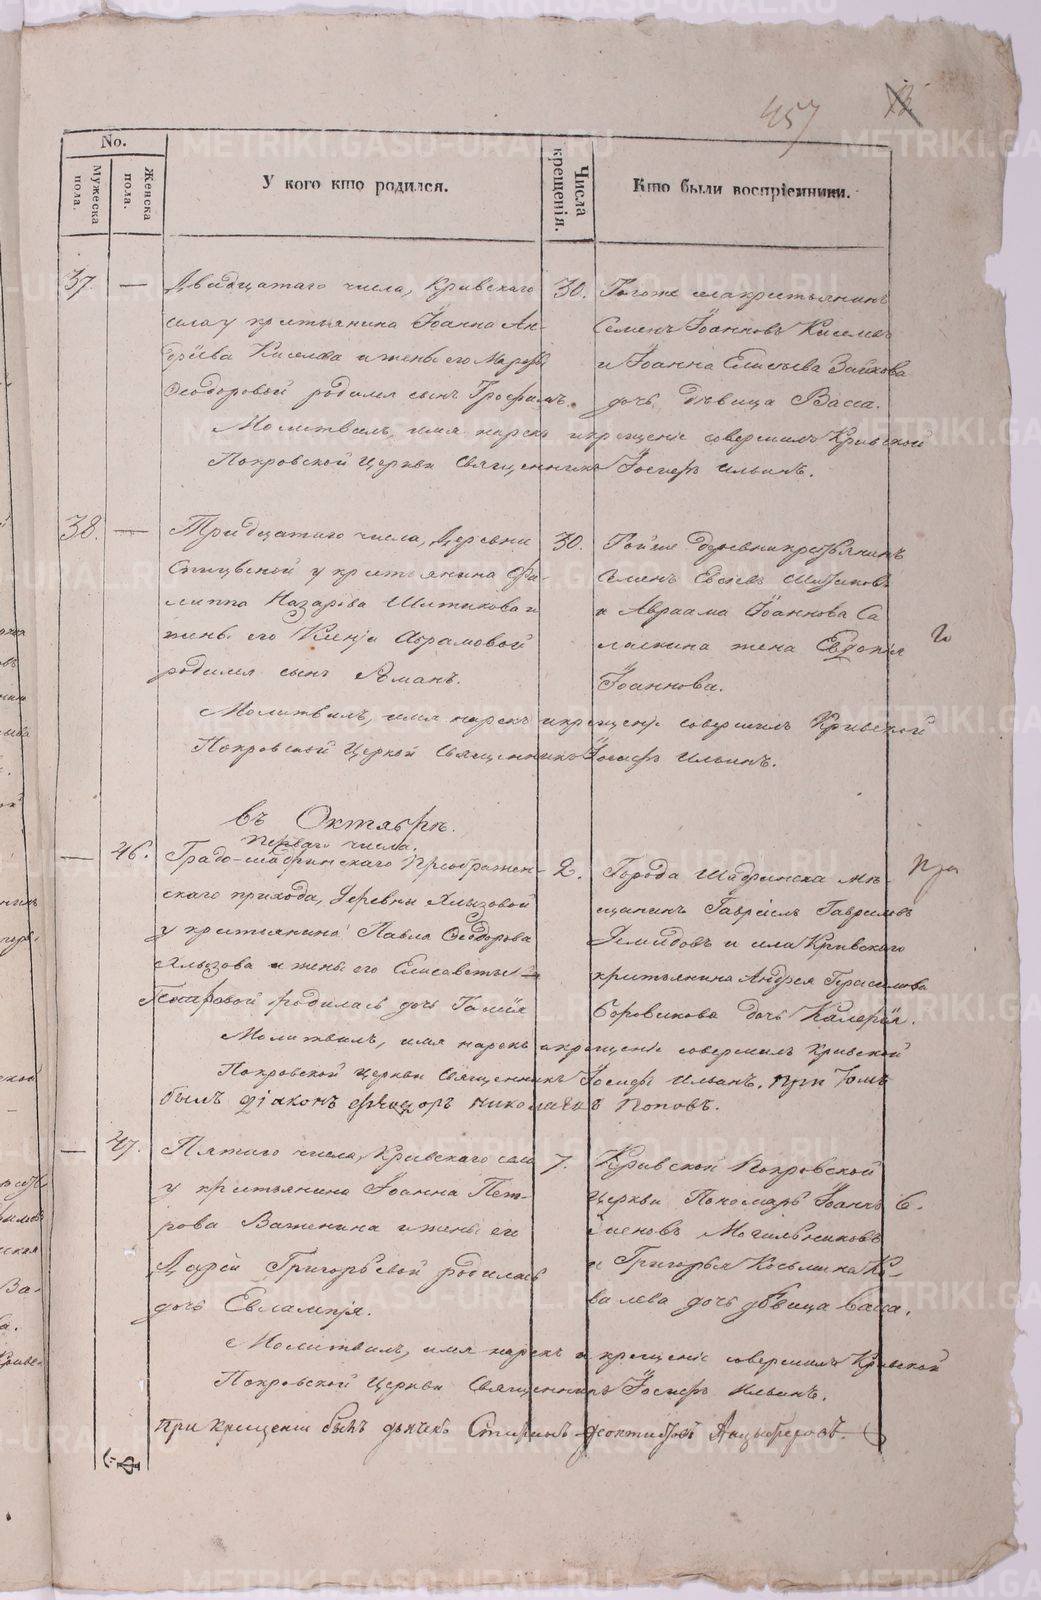 457
No.
Мужеска пола.
Женска пола.
У кого кто родился.
Числа крещенія.
Кто были воспріемники.
37. — Двадцатаго числа, Кривскаго 30. Тогоже села крестьянинъ
села у крестьянина Іоанна Ан- Семенъ Іоанновъ Киселевъ
дреева Киселева и жены его Марфы и Іоанна Елисеева Зайкова
Ѳеодоровой родился сынъ Трофимъ. дочь дѣвица Васса.
Молитвилъ, имя нарекъ и крещеніе совершилъ Кривской
Покровской Церкви Священникъ Іосифъ Ильинъ.
38. — Тридцатаго числа, Деревни 30. Тойже деревни крестьянинъ
у крестьянина Фи- Семенъ
липпа Назарова Шитикова и и Авраама Іоаннова Са
жены его Ксеніи Абрамовой ласкина жена Евдокія
родился сынъ Романъ. Іоаннова.
Молитвилъ, имя нарекъ и крещеніе совершилъ Кривской
Покровской Церкви Священникъ Іосифъ Ильинъ.
въ Октябрѣ.
Перваго числа.
— 46. Градо-шадринскаго Преображен- 2. Города Шадринска мѣ-
скаго прихода, Деревни Ялызовой щанинъ Гавріилъ Гавриловъ
у крестьянина Павла Ѳеодорова Демидовъ и села Кривскаго
Ялызова и жены его Елисаветы крестьянина Андрея Герасимова
родилась дочь Боровикова дочь Валерія.
Молитвилъ, имя нарекъ и крещеніе совершилъ Кривской
Покровской Церкви Священникъ Іосифъ Ильинъ. при томъ
былъ діаконъ Николаевъ Поповъ.
— 47. Пятаго числа, Кривскаго села 7. Кривской Покровской
у крестьянина Іоанна Пет- Церкви Пономарь Іоаннъ С.
рова Важенина и жены его меновъ Могильниковъ
Даріи Григорьевой родилась и Григорья Косьмина Ко-
дочь Евлампія. валева дочь дѣвица Васса.
Молитвилъ, имя нарекъ и крещеніе совершилъ Кривской
Покровской Церкви Священникъ Іосифъ Ильинъ.
при крещеніи былъ дьячекъ
METRIKI.GASO-URAL.RU